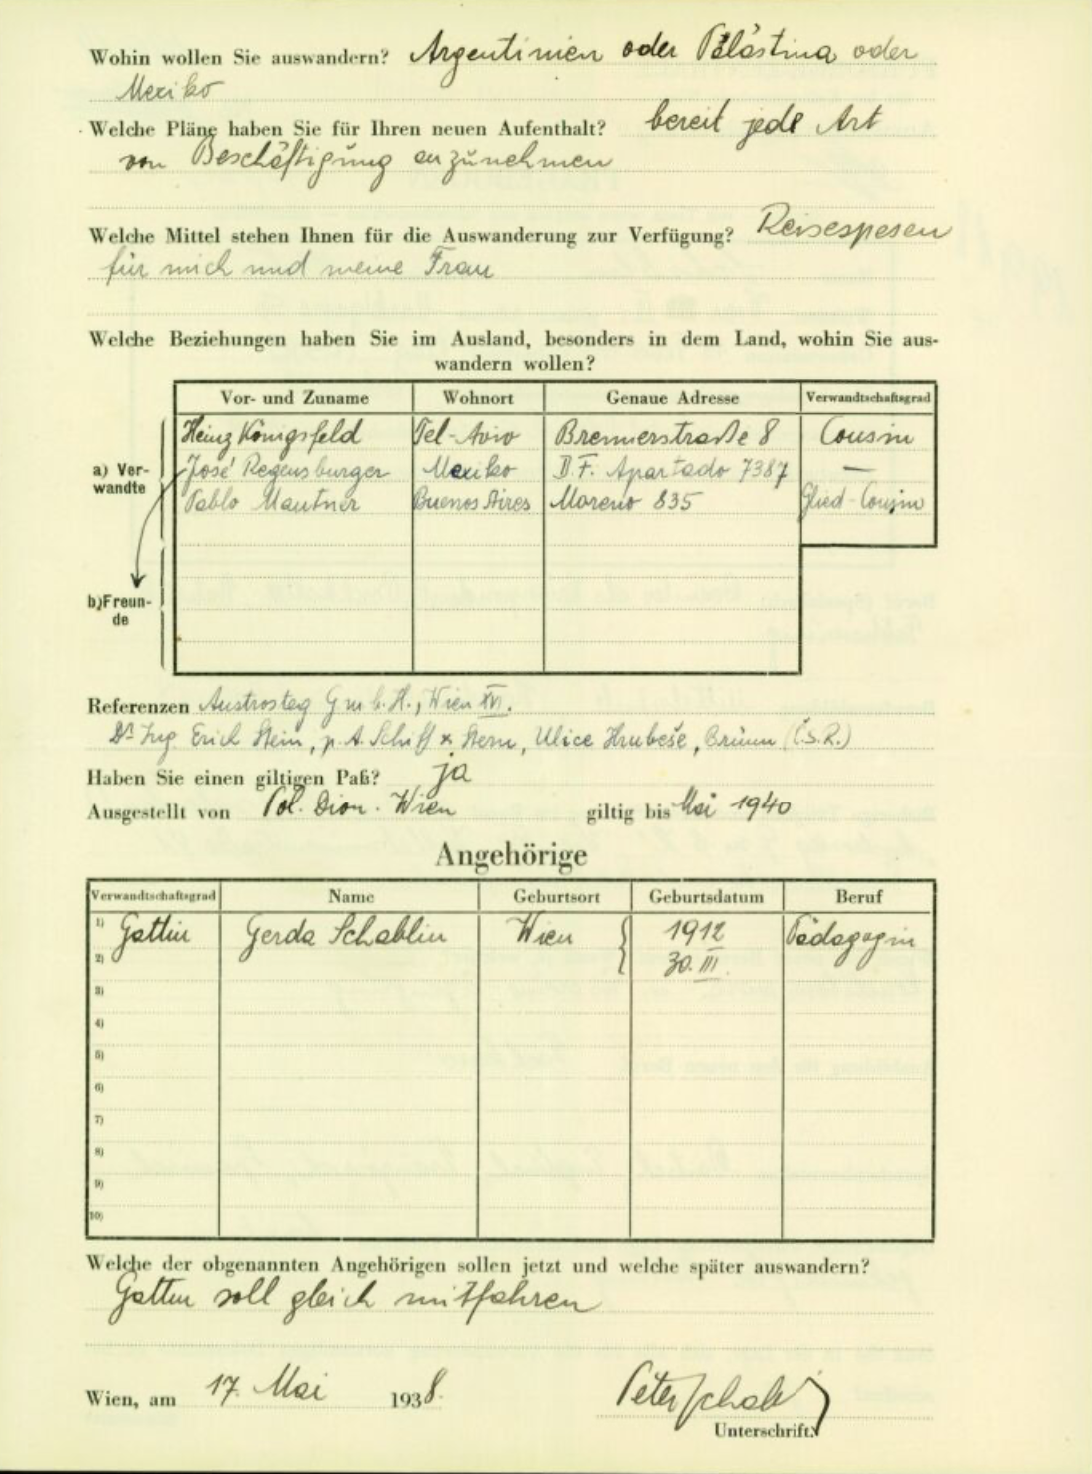 Wohin wollen Sie auswandern? Argentinien oder Palästina oder
Mexiko
Welche Pläne haben Sie für Ihren neuen Aufenthalt? bereit jede Art
von Beschäftigung anzunehmen
Welche Mittel stehen Ihnen für die Auswanderung zur Verfügung? Reisespesen
für mich und meine Frau
Welche Beziehungen haben Sie im Ausland, besonders in dem Land, wohin Sie aus-
wandern wollen?
Vor- und Zuname Wohnort Genaue Adresse Verwandtschaftsgrad
Heinz Königsfeld Tel-Aviv Brennerstraße 8 Cousin
a) Ver-
wandte
José Regensburger Mexiko D.F. Apartado 7387 —
Pablo Mautner Buenos Aires Moreno 835 Glied-Cousin
b) Freun-
de
Referenzen Austrosteg G.m.b.H., Wien XVI.
Dr Ing. Erich Stein, p. A. Schiff & Stern, Ulice Hrubeše, Brünn (Č.S.R.)
Haben Sie einen giltigen Paß? ja
Ausgestellt von Pol. Dion. Wien giltig bis Mai 1940
Angehörige
Verwandtschaftsgrad Name Geburtsort Geburtsdatum Beruf
1) Gattin Gerda Schablin Wien 1912 Pädagogin
2) 30. III.
3)
4)
5)
6)
7)
8)
9)
10)
Welche der obgenannten Angehörigen sollen jetzt und welche später auswandern?
Gattin soll gleich mitfahren
Wien, am 17. Mai 1938.
Peter Schab
Unterschrift: